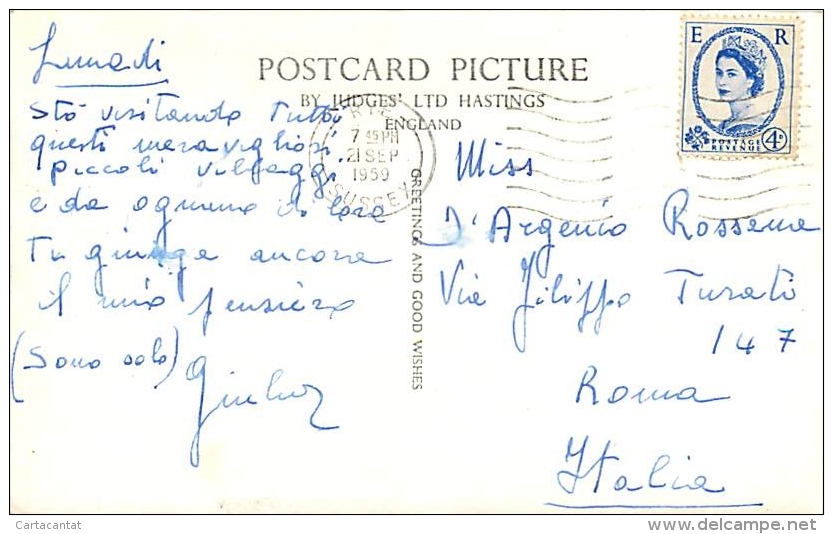 Lunedì
POSTCARD PICTURE
BY JUDGES' LTD HASTINGS
ENGLAND
E R
POSTAGE
REVENUE
4D
RYE
7 45 PM
21 SEP
1959
SUSSEX
Stò visitando tutti
questi meravigliosi
piccoli villaggi
e da ognuno di loro
Ti giunga ancora
il mio pensiero
(Sono solo)
GREETINGS AND GOOD WISHES
Miss
D'Argenio Rossana
Via Filippo Turati
147
Roma
Italia
Cartacantat
delcampe.net